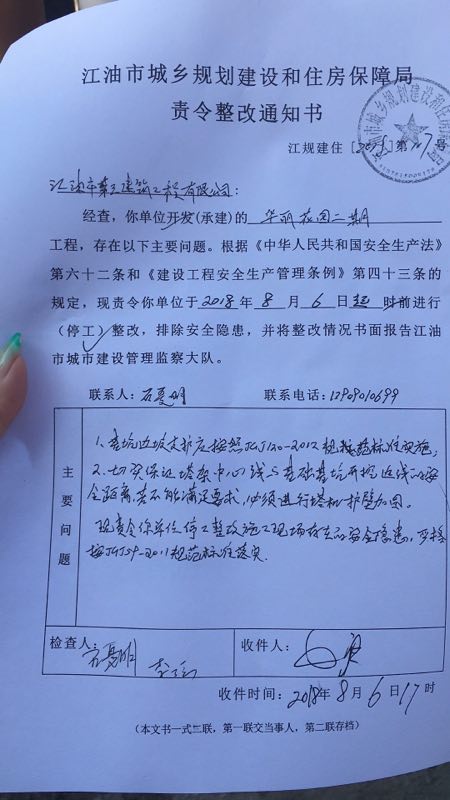 江油市城乡规划建设和住房保障局
责令整改通知书
江规建住〔2018〕第 号
江油市 建筑工程有限公司:
经查，你单位开发(承建)的 华丽花园二期
工程，存在以下主要问题。根据《中华人民共和国安全生产法》
第六十二条和《建设工程安全生产管理条例》第四十三条的
规定，现责令你单位于2018年8月6日起 时前进行
(停工)整改，排除安全隐患，并将整改情况书面报告江油
市城市建设管理监察大队。
联系人: 石夏明 联系电话: 13909010699
主要问题
1、基坑边坡支护应按照JGJ120-2012规范标准实施;
2、切实保证塔架中心线与基础基坑开挖边线的安
全距离,若不能满足要求,必须进行塔机护壁加固。
现责令你单位停工整改施工现场存在的安全隐患,严格
按JGJ59-2011规范标准落实.
检查人: 石夏明
收件人:
收件时间: 2018年8月6日17时
(本文书一式二联，第一联交当事人，第二联存档)